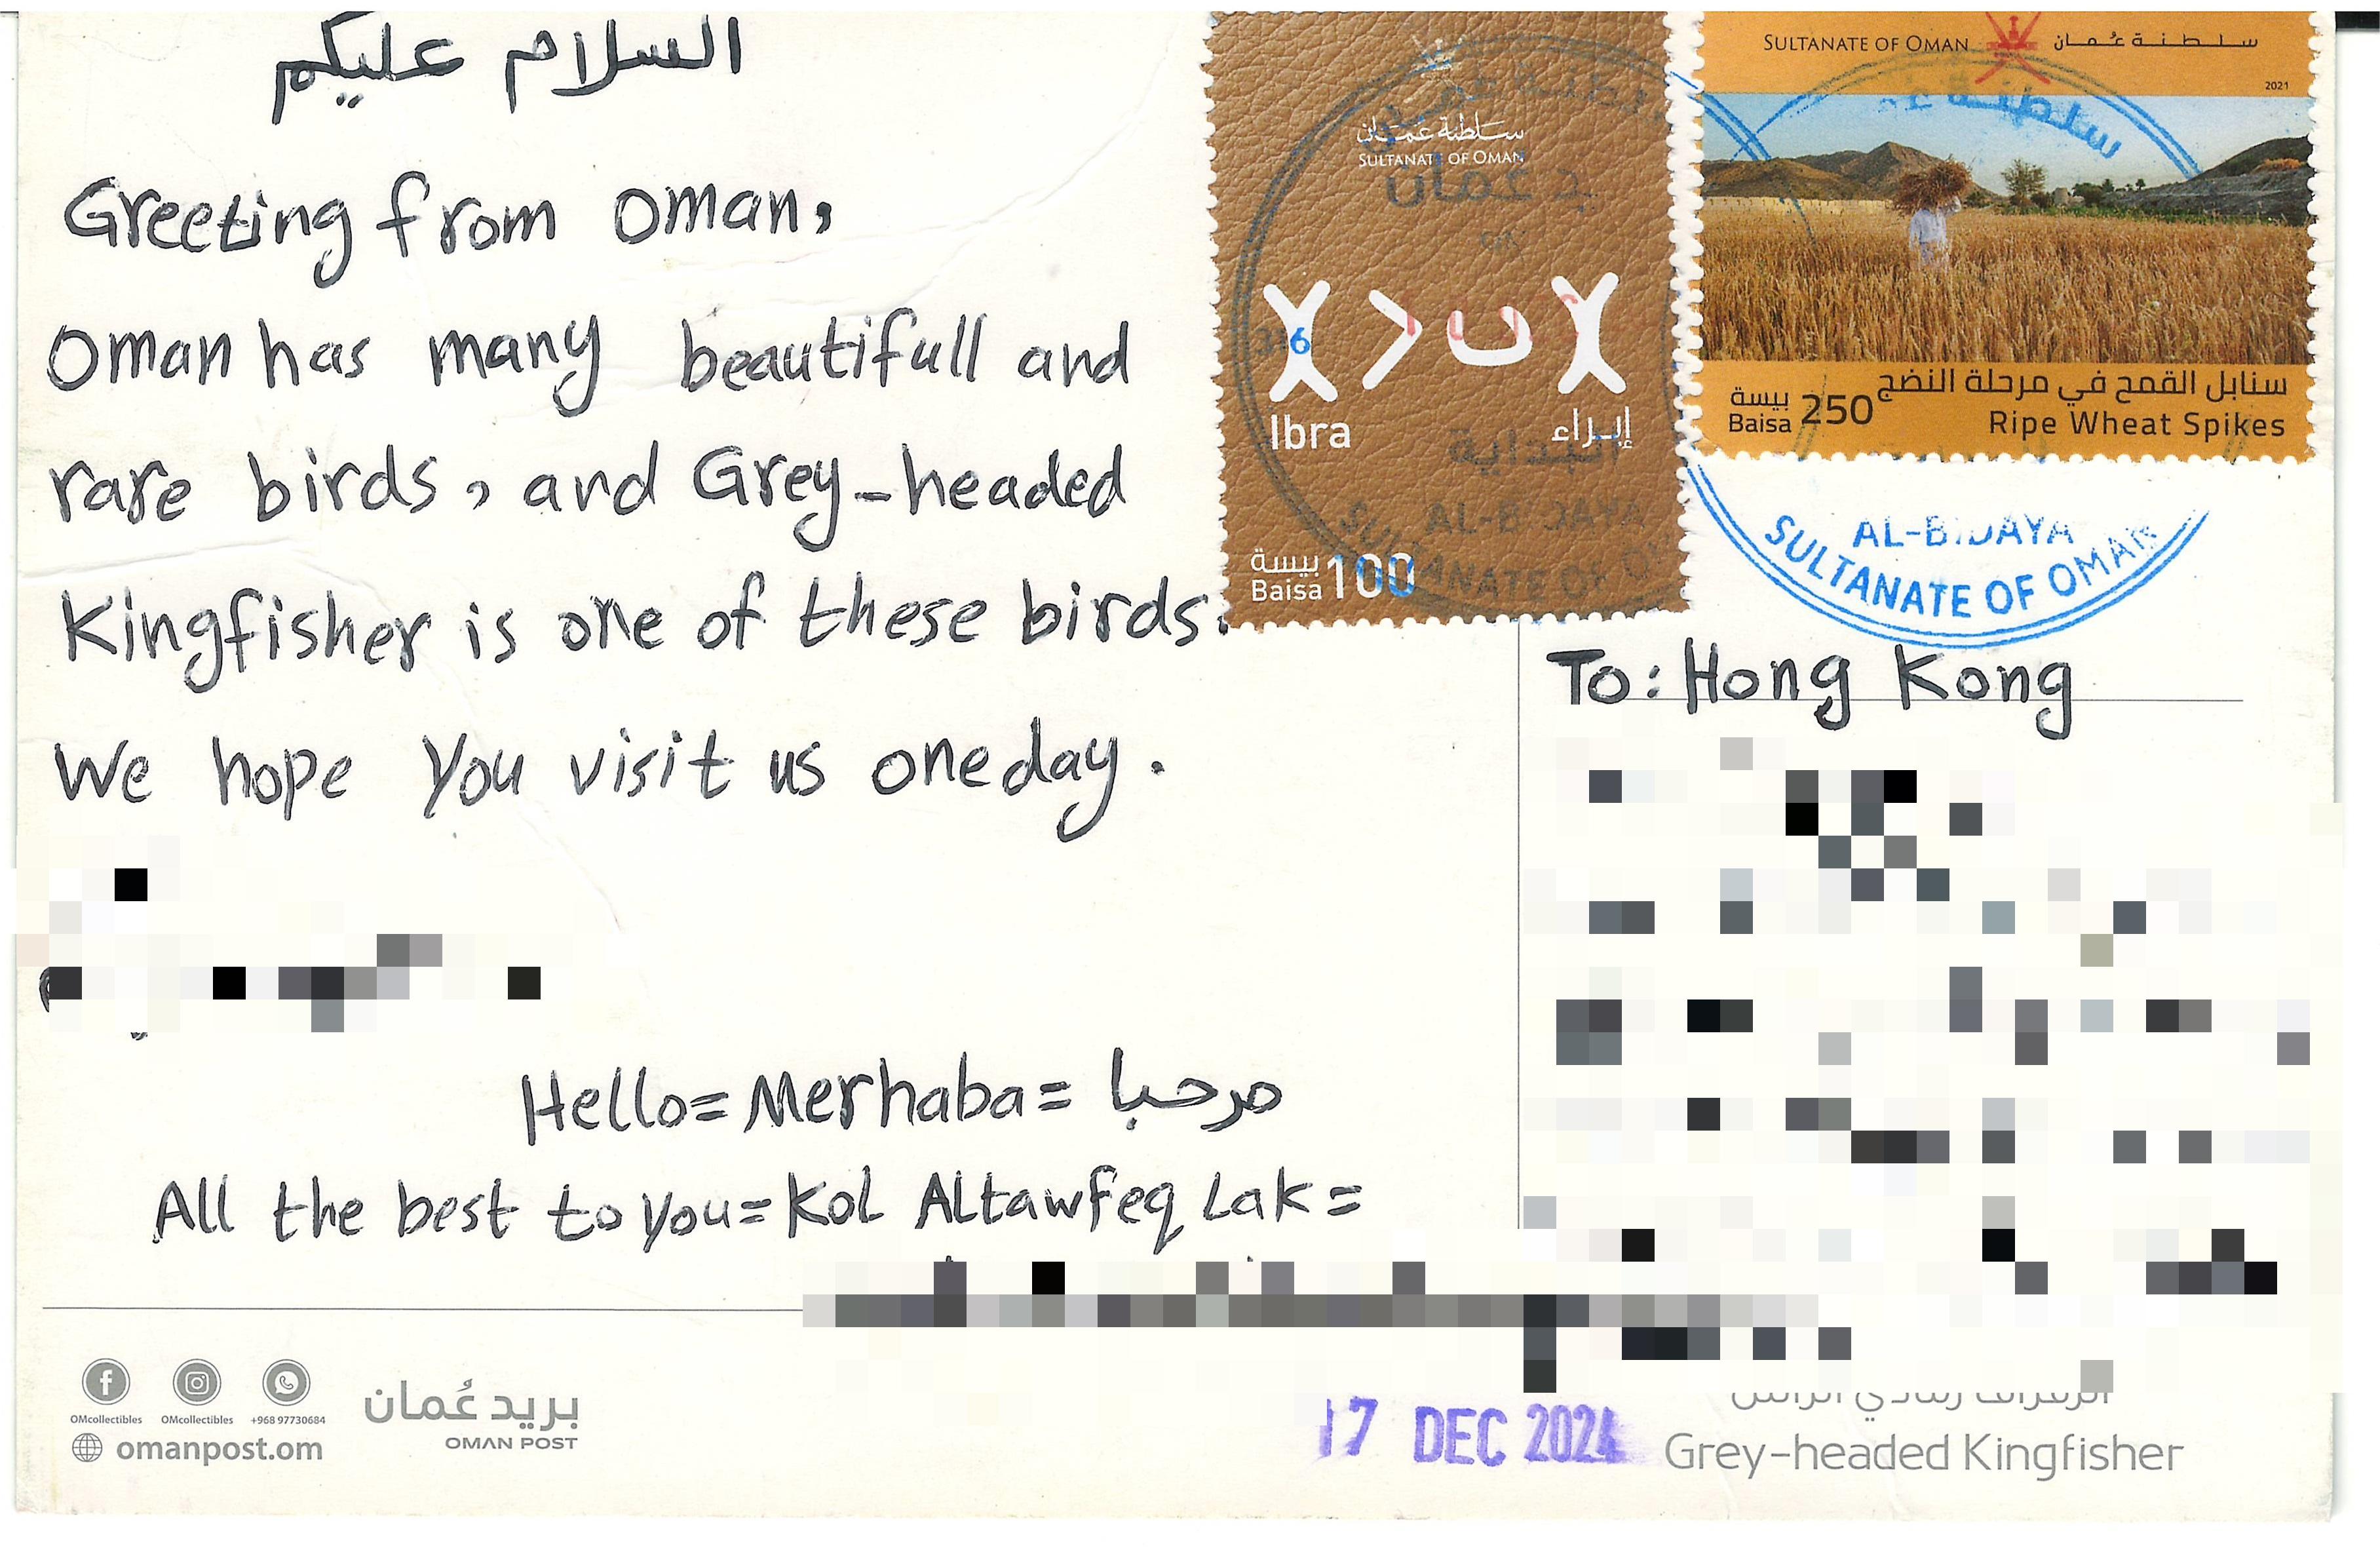 السلام عليكم
Greeting from Oman,
Oman has many beautifull and
rare birds, and Grey-headed
Kingfisher is one of these birds.
We hope you visit us one day.
Hello= Merhaba= مرحبا
All the best to you= Kol Altawfeq Lak=
سلطنة عمان
SULTANATE OF OMAN
Ibra إبراء
بيسة
Baisa 100
البداية
SULTANATE OF OMAN سلطنة عمان
2021
سنابل القمح في مرحلة النضج
Ripe Wheat Spikes
بيسة
Baisa 250
سلطنة
AL-BIDAYA
SULTANATE OF OMAN
To: Hong Kong
OMcollectibles OMcollectibles +968 97730684
omanpost.om
بريد عُمان
OMAN POST
17 DEC 2024
Grey-headed Kingfisher